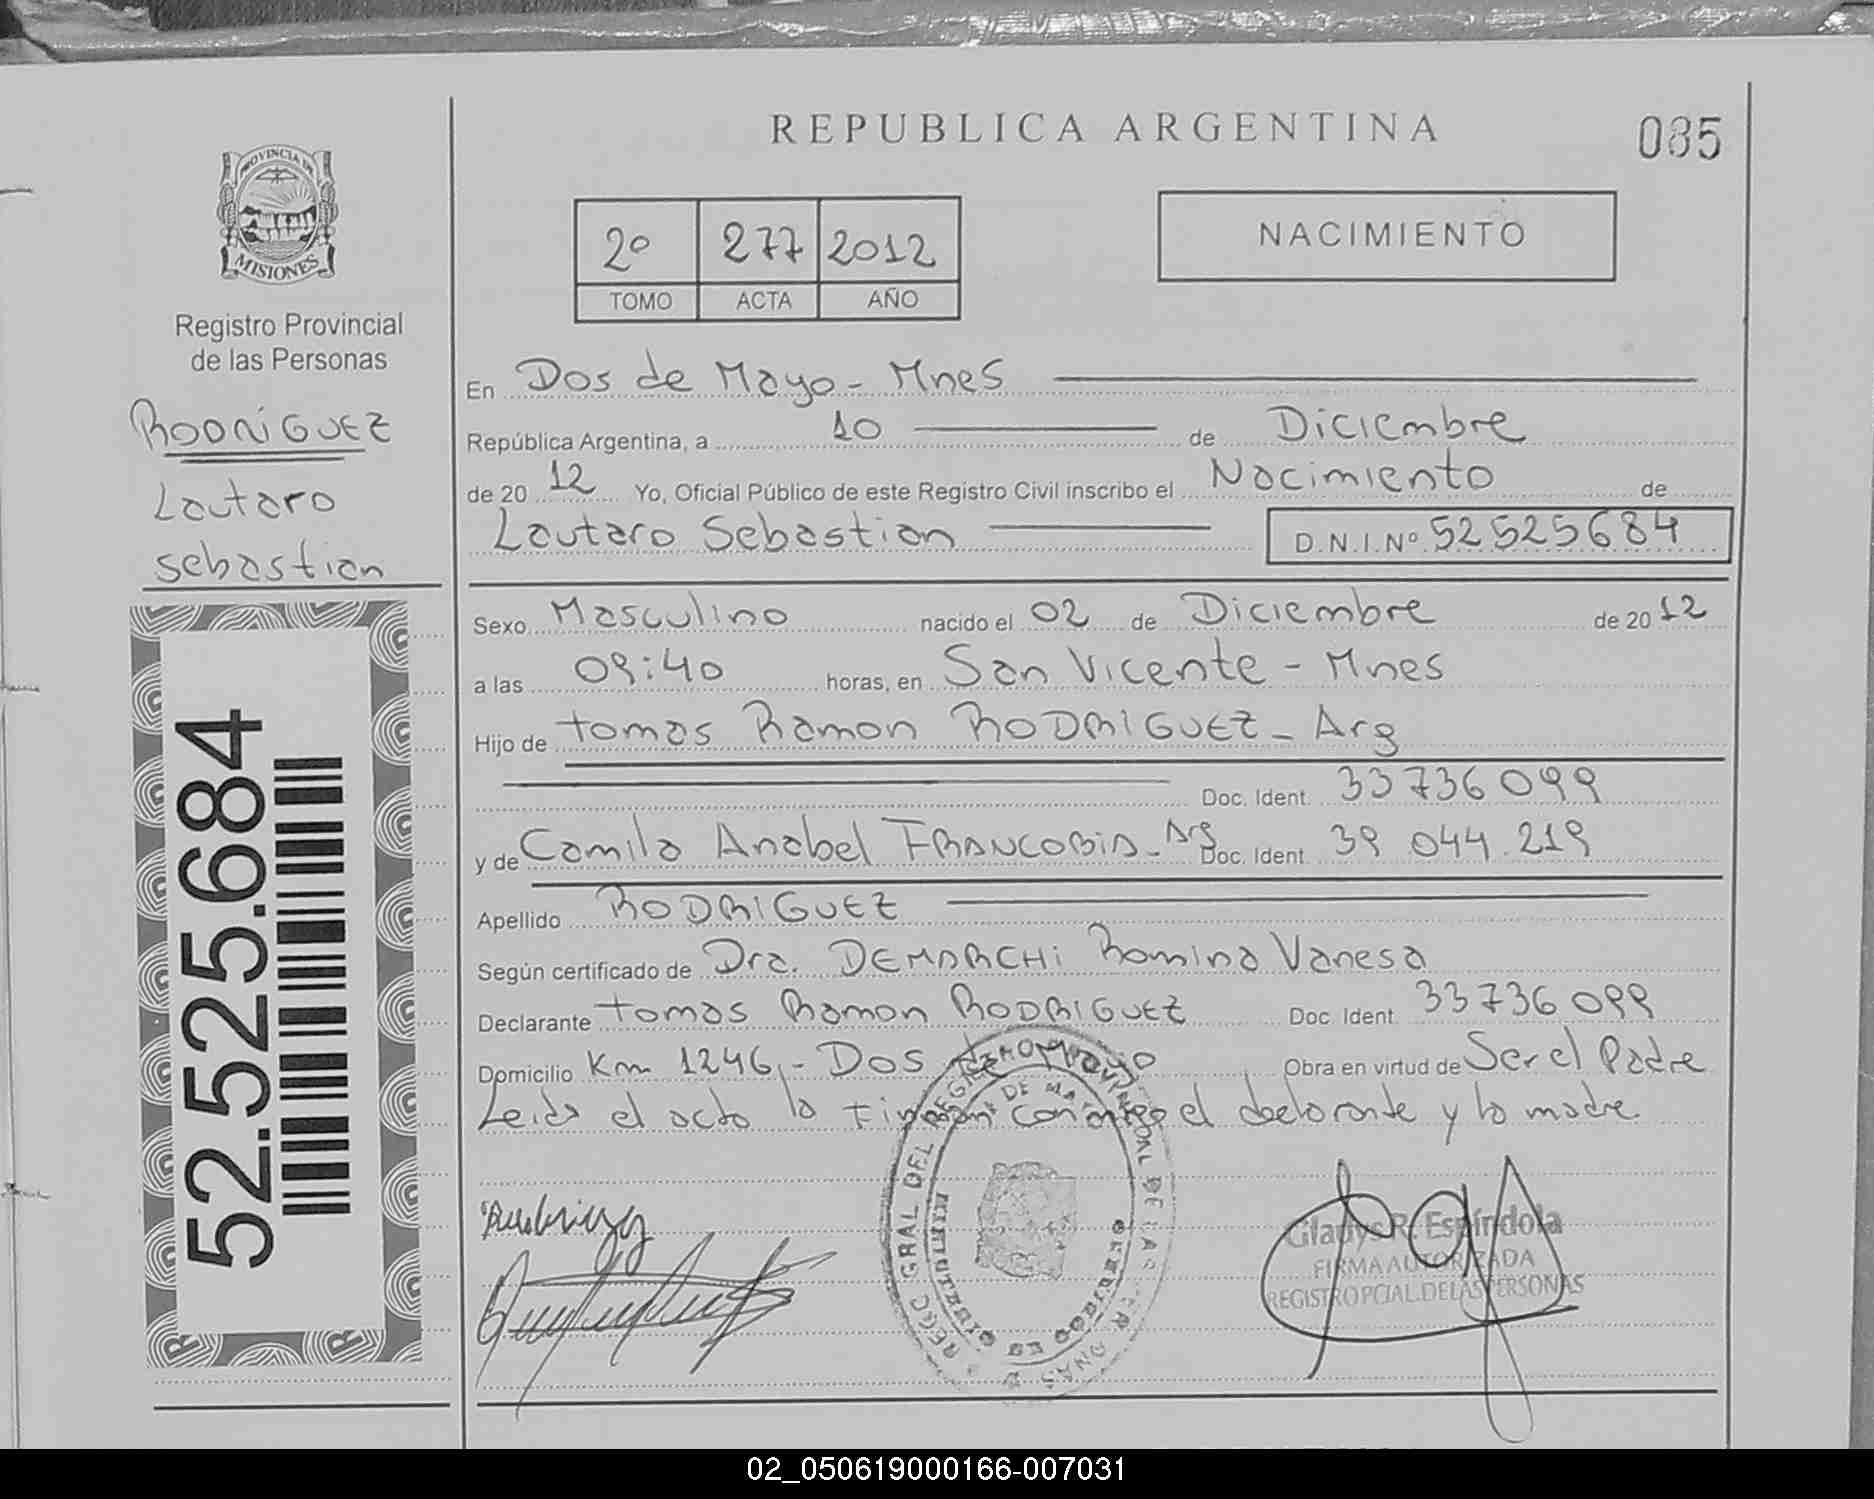 REPUBLICA ARGENTINA
085
PROVINCIA DE
MISIONES
Registro Provincial
de las Personas
RODRIGUEZ
Lautaro
Sebastian
52.525.684
2º 277 2012
TOMO ACTA AÑO
NACIMIENTO
En Dos de Mayo - Mnes
República Argentina, a 10 de Diciembre
de 20 12 Yo, Oficial Público de este Registro Civil inscribo el Nacimiento de
Lautaro Sebastian D.N.I.Nº 52525684
Sexo Masculino nacido el 02 de Diciembre de 20 12
a las 09:40 horas, en San Vicente - Mnes
Hijo de Tomas Ramon RODRIGUEZ - Arg
Doc. Ident. 33736099
y de Camila Anabel FRANCOBIA - Arg Doc. Ident. 39 044 219
Apellido RODRIGUEZ
Según certificado de Dra. DEMARCHI Romina Vanesa
Declarante Tomas Ramon RODRIGUEZ Doc. Ident. 33736099
Domicilio Km 1246 - Dos de Mayo Obra en virtud de Ser el Padre
Leida el acta la firman conmigo el declarante y la madre
Gladys R. Espíndola
FIRMA AUTORIZADA
REGISTRO PCIAL. DE LAS PERSONAS
02_050619000166-007031